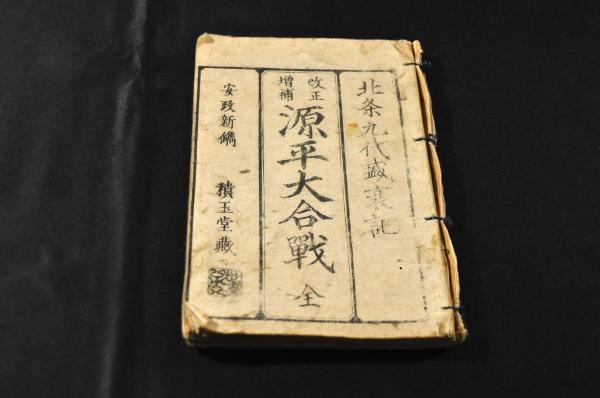 北条九代盛衰記
改正
増補
源平大合戰
全
安政新鐫
積玉堂藏